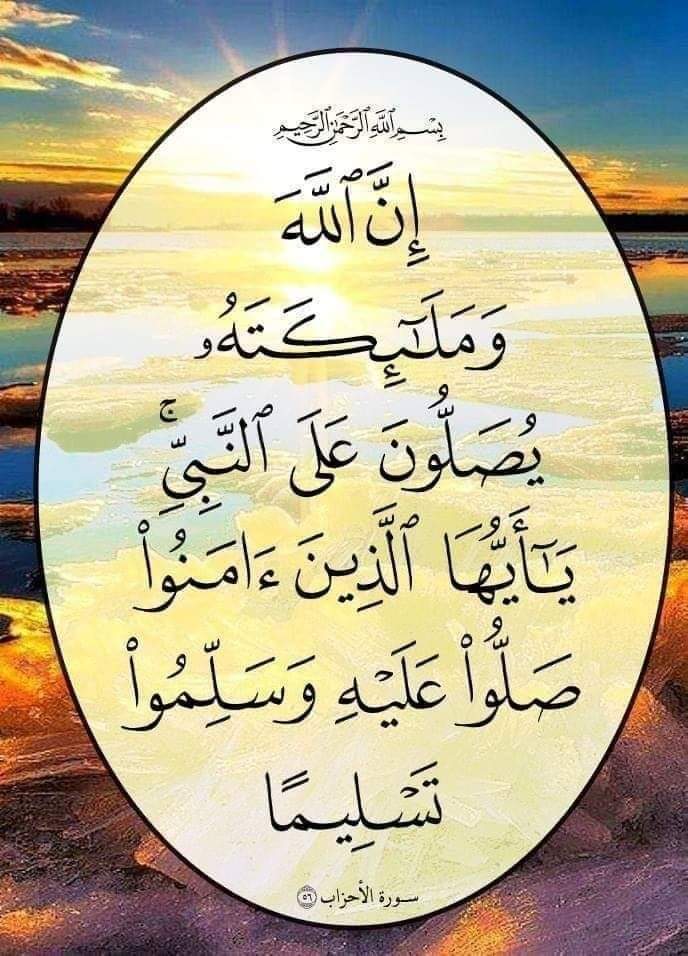 بِسْمِ ٱللَّهِ ٱلرَّحْمَٰنِ ٱلرَّحِيمِ
إِنَّ ٱللَّهَ
وَمَلَٰٓئِكَتَهُۥ
يُصَلُّونَ عَلَى ٱلنَّبِيِّۚ
يَٰٓأَيُّهَا ٱلَّذِينَ ءَامَنُوا۟
صَلُّوا۟ عَلَيْهِ وَسَلِّمُوا۟
تَسْلِيمًا
سورة الأحزاب ٥٦